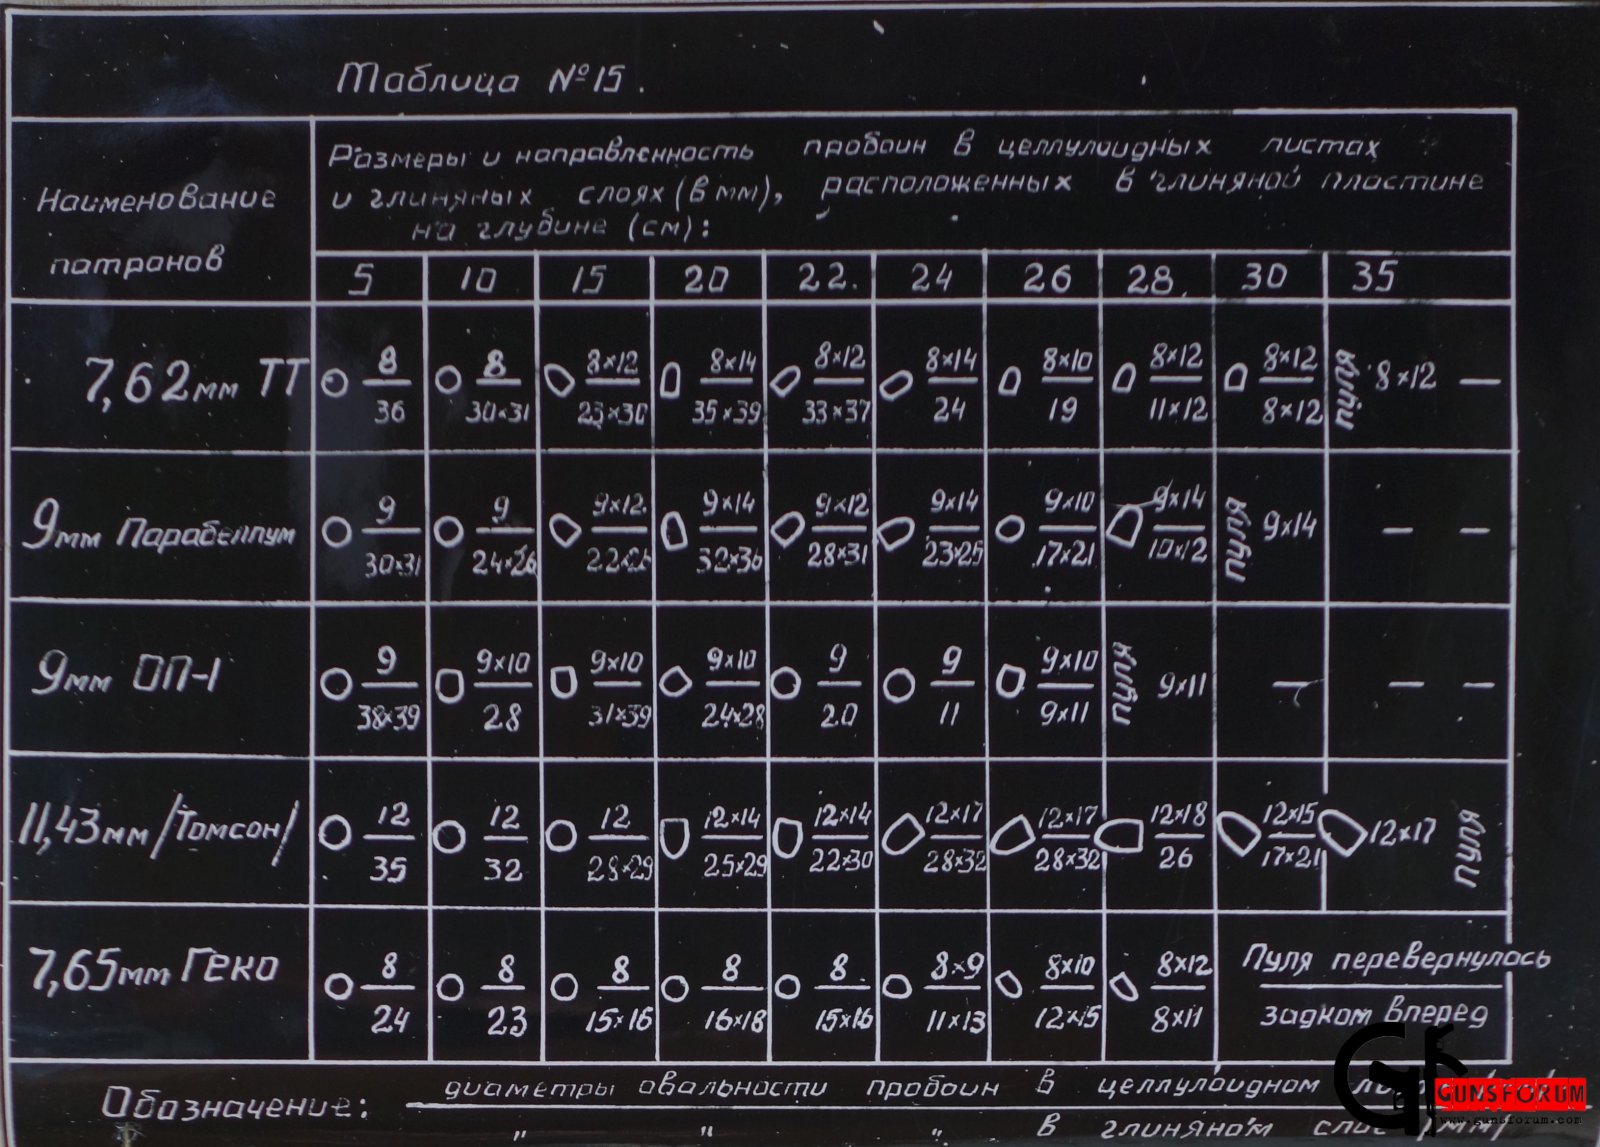 Таблица №15.
Наименование патронов
Размеры и направленность пробоин в целлулоидных листах
и глиняных слоях (в мм), расположенных в глиняной пластине
на глубине (см):
5 10 15 20 22. 24 26 28. 30 35
7,62мм ТТ 8/36 8/30×31 8×12/23×30 8×14/35×39 8×12/33×37 8×14/24 8×10/19 8×12/11×12 8×12/8×12 пуля 8×12 —
9мм Парабеллум 9/30×31 9/24×26 9×12/22×26 9×14/32×36 9×12/28×31 9×14/23×25 9×10/17×21 9×14/10×12 пуля 9×14 — —
9мм ОП-1 9/38×39 9×10/28 9×10/31×39 9×10/24×28 9/20 9/11 9×10/9×11 пуля 9×11 — — —
11,43мм/Томсон/ 12/35 12/32 12/28×29 12×14/25×29 12×14/22×30 12×17/28×32 12×17/28×32 12×18/26 12×15/17×21 12×17 пуля
7,65мм Геко 8/24 8/23 8/15×16 8/16×18 8/15×16 8×9/11×13 8×10/12×15 8×12/8×11 Пуля перевернулась
задком вперед
Обозначение: диаметры овальности пробоин в целлулоидном
" " " в глиняном слое /мм/
GUNSFORUM
www.gunsforum.com